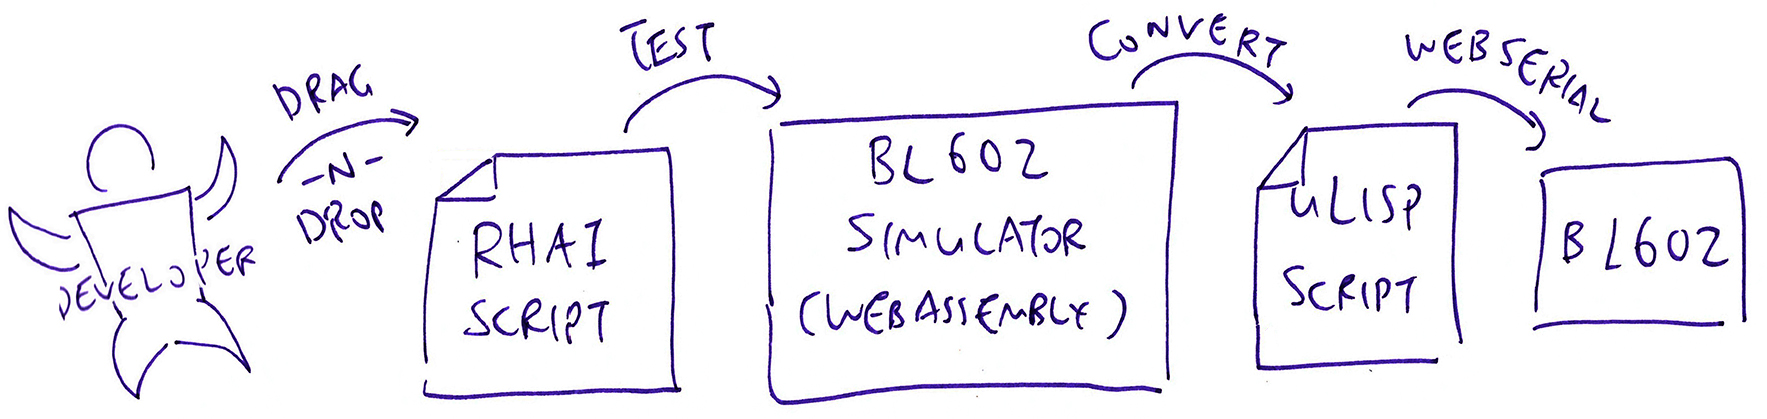 DEVELOPER
DRAG
-N-
DROP
RHAI
SCRIPT
TEST
BL602
SIMULATOR
(WEBASSEMBLY)
CONVERT
uLISP
SCRIPT
WEBSERIAL
BL602